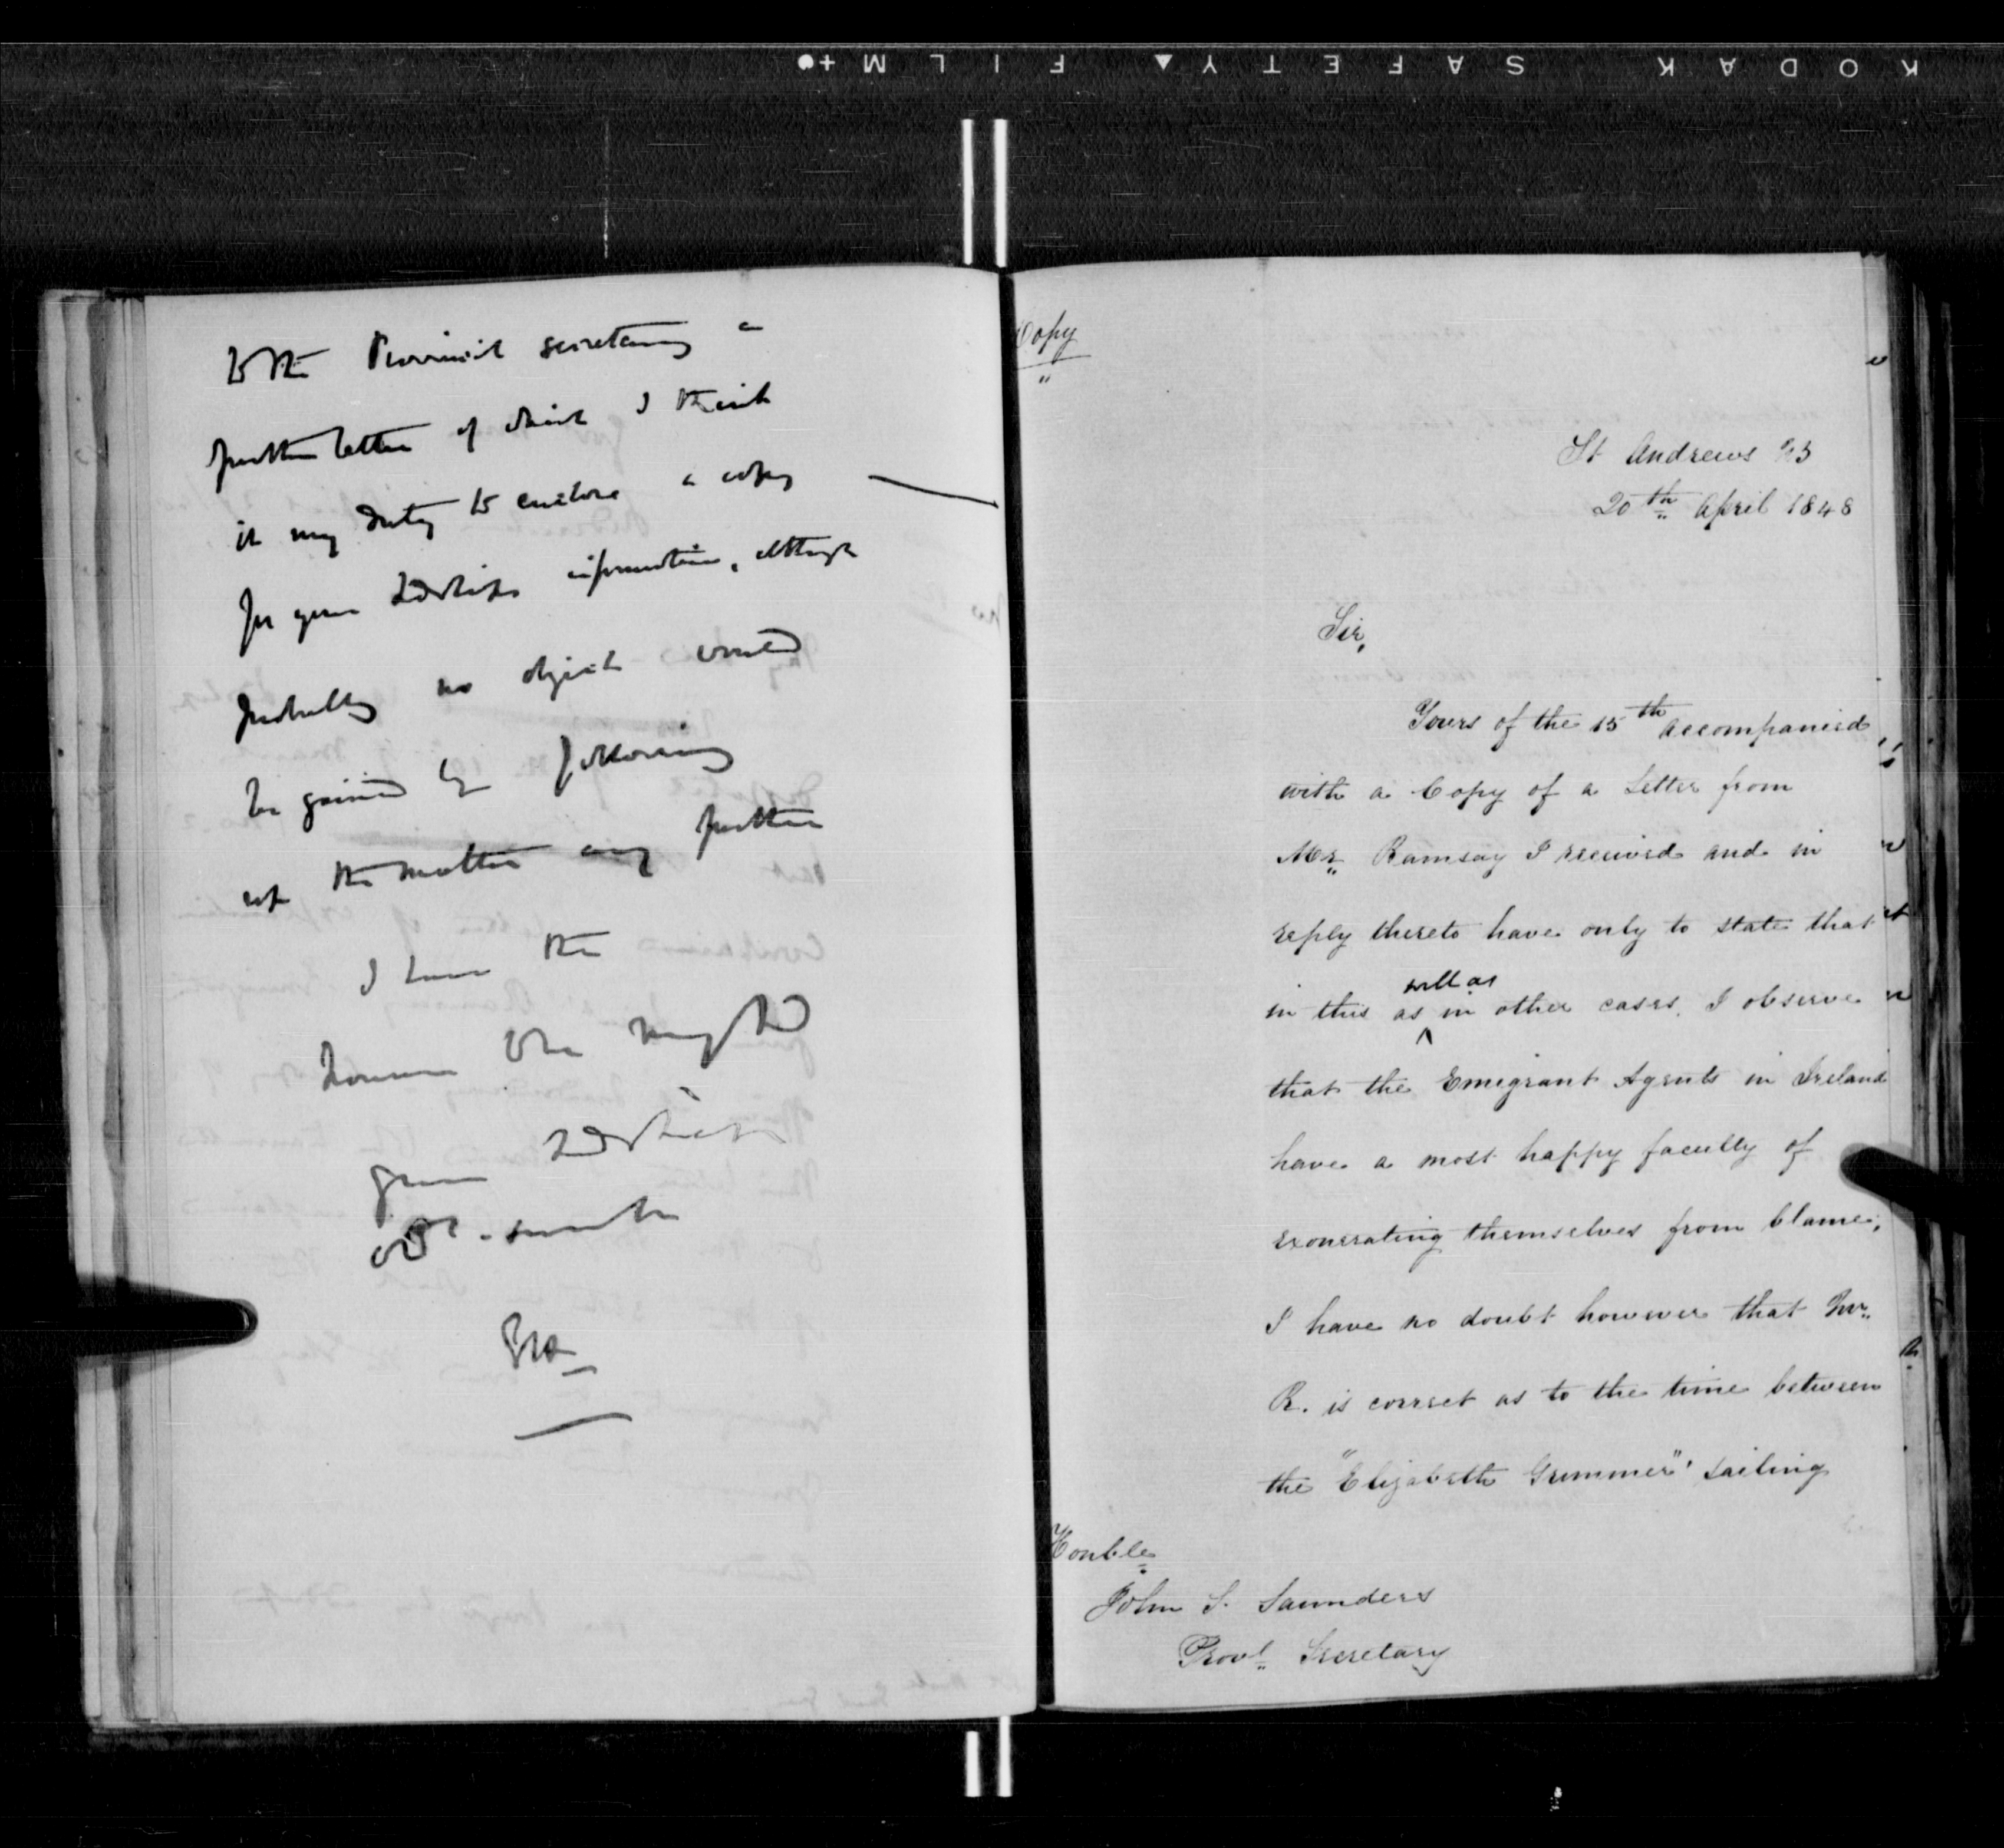 KODAK SAFETY FILM
to the Provincial secretary a
further letter of which I think
it my duty to enclose a copy
for your Lordship's information, although
probably no object would
be gained by following
up the matter any further
I have the
honour to be my Lord
your Lordship's
obt. servt
Copy
St Andrews NB
20th April 1848
Sir,
Yours of the 15th accompanied
with a Copy of a Letter from
Mr Ramsay I received and in
reply thereto have only to state that
in this as well as in other cases, I observe
that the Emigrant Agents in Ireland
have a most happy faculty of
exonerating themselves from blame,
I have no doubt however that Mr.
R. is correct as to the time between
the "Elizabeth Grimmer" sailing
Honble
John S. Saunders
Provl Secretary